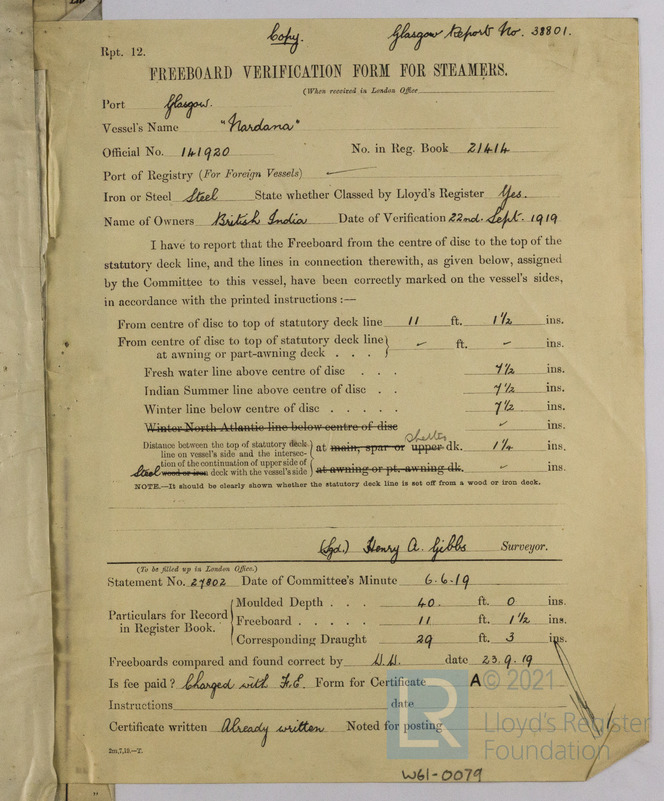 Copy. Glasgow Report No. 38801.
Rpt. 12.
FREEBOARD VERIFICATION FORM FOR STEAMERS.
(When received in London Office
Port Glasgow.
Vessel's Name "Nardana"
Official No. 141920 No. in Reg. Book 21414
Port of Registry (For Foreign Vessels)
Iron or Steel Steel State whether Classed by Lloyd's Register Yes.
Name of Owners British India Date of Verification 22nd. Sept. 1919
I have to report that the Freeboard from the centre of disc to the top of the
statutory deck line, and the lines in connection therewith, as given below, assigned
by the Committee to this vessel, have been correctly marked on the vessel's sides,
in accordance with the printed instructions :—
From centre of disc to top of statutory deck line 11 ft. 1 1/2 ins.
From centre of disc to top of statutory deck line
at awning or part-awning deck . . . ft. ins.
Fresh water line above centre of disc . . . 7 1/2 ins.
Indian Summer line above centre of disc . . 7 1/2 ins.
Winter line below centre of disc . . . . . 7 1/2 ins.
Winter North Atlantic line below centre of disc ins.
Distance between the top of statutory deck
line on vessel's side and the intersec-
tion of the continuation of upper side of
Steel wood or iron deck with the vessel's side
at main, spar or upper shelter dk. 1 1/4 ins.
at awning or pt. awning dk. ins.
NOTE.—It should be clearly shown whether the statutory deck line is set off from a wood or iron deck.
(Sgd.) Henry A. Gibbs Surveyor.
(To be filled up in London Office.)
Statement No. 27802 Date of Committee's Minute 6.6.19
Particulars for Record
in Register Book.
Moulded Depth . . . 40. ft. 0 ins.
Freeboard . . . . . 11 ft. 1 1/2 ins.
Corresponding Draught 29 ft. 3 ins.
Freeboards compared and found correct by date 23.9.19
Is fee paid? Charged with F.E. Form for Certificate A
Instructions date
Certificate written Already written Noted for posting
2m,7,18.—T.
LR
© 2021
Lloyd's Register
Foundation
W61-0079